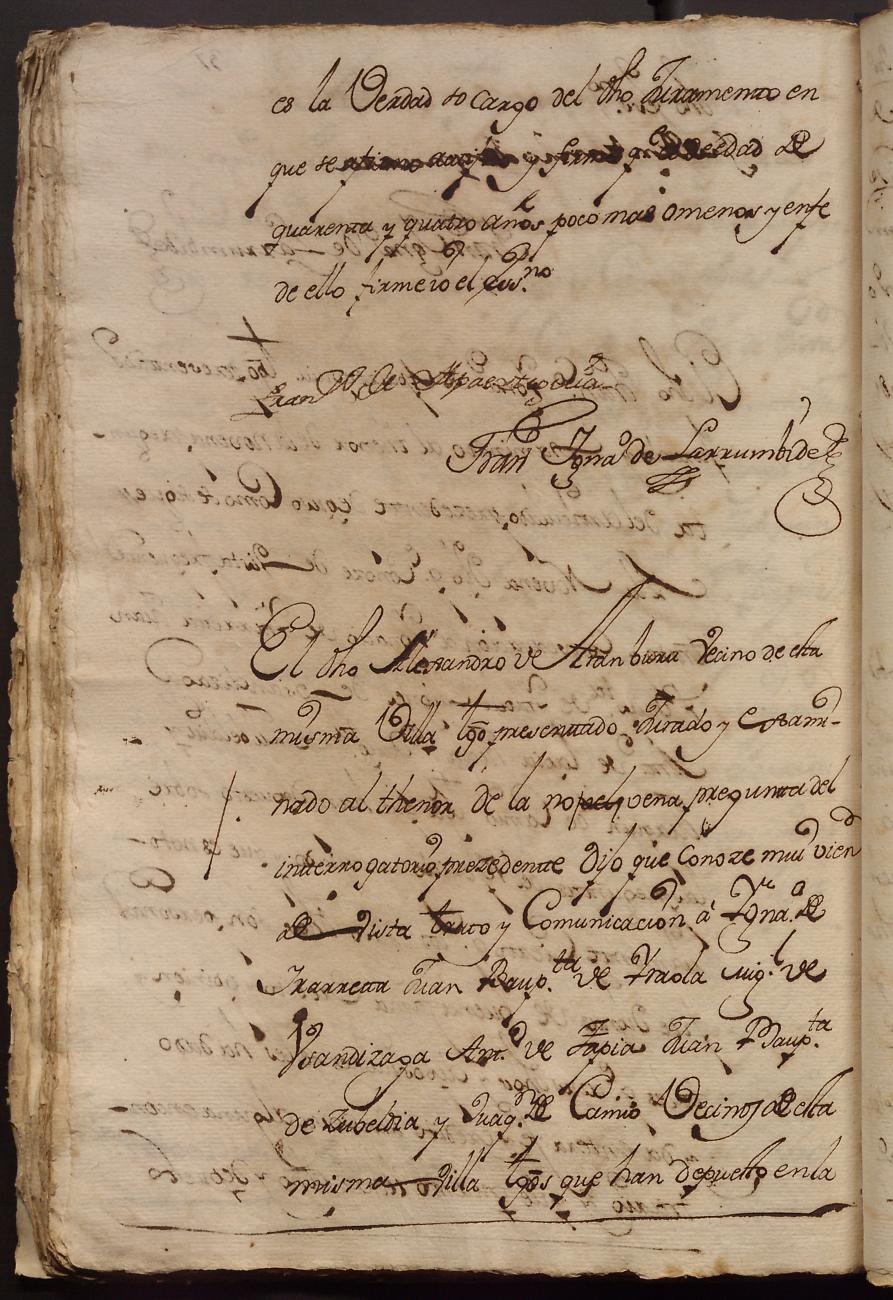 es la Verdad so cargo del dho Juramento en
que se afirmo y firmo edad de
quarenta y quatro años poco mas o menos y enfe
de ello firme io el ess.no
Fran.co de
Fran Igna.o de Larrumbide
El dho Alexandro de Aranburu Vecino de esta
misma Villa tgo presentado Jurado y Exsami-
nado al thenor de la novena pregunta del
interrogatorio prezedente Dijo que conoze mui vien
de vista trato y Comunicacion a Igna.o de
Irarreta Juan Baup.ta de Iraola Mig.l de
Vsandizaga Ant.o de Tapia Juan Baup.ta
de Zubeldia y Juaq.n de Camio Vecinos de esta
misma Villa tgos que han depuesto en la